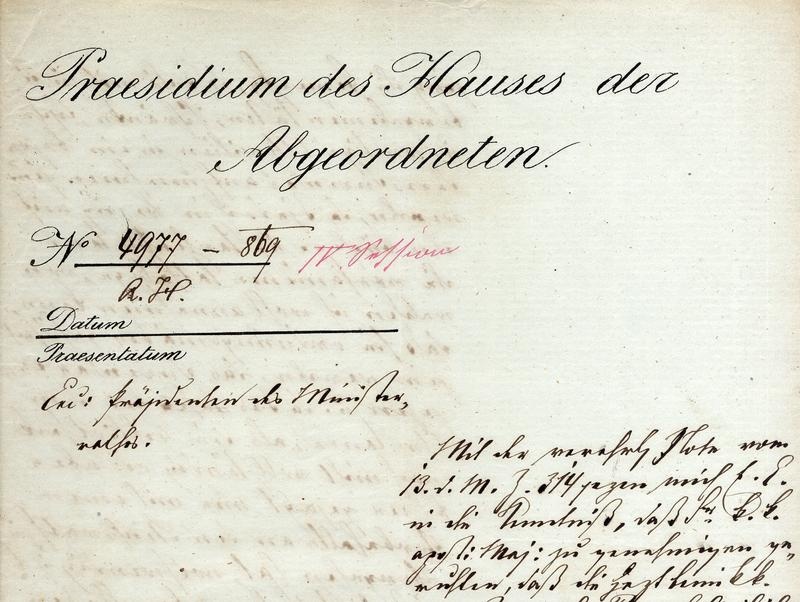 Praesidium des Hauses der
Abgeordneten.
No 4977 – 869 IV. Session
A. H.
Datum
Praesentatum
Exc: Präsidenten des Minister-
rathes.
Mit der verehrten Note vom
13. d. M. Z. 314 setzen mich E. E.
in die Kenntniß, daß Se. k. k.
apost: Maj: zu genehmigen ge-
ruhten, daß die